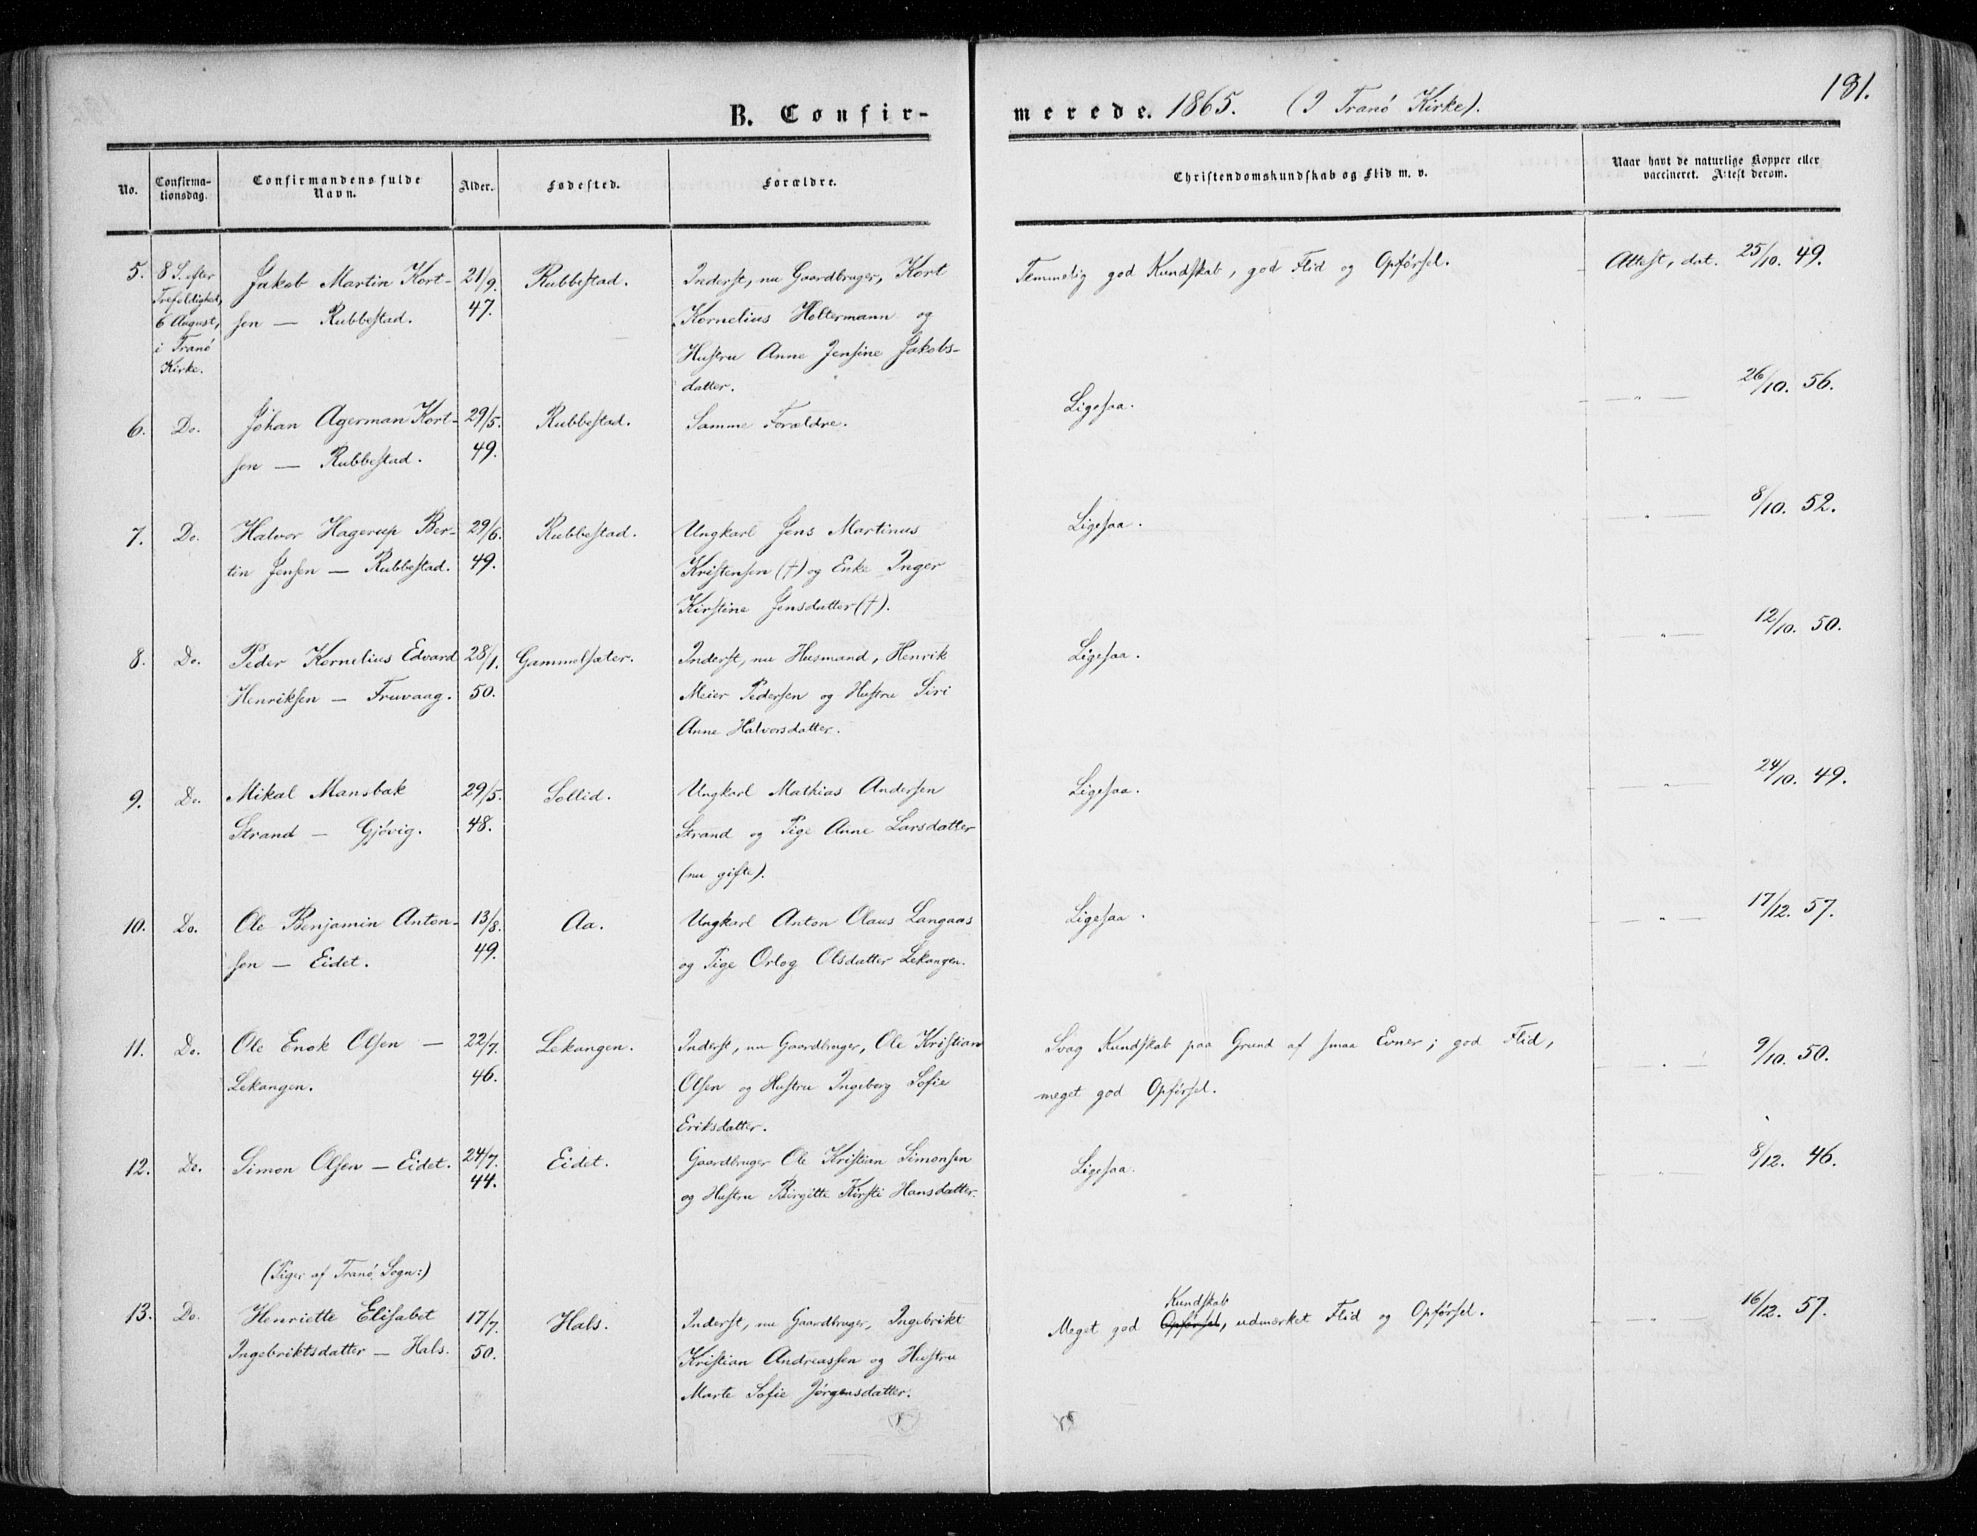 181.
B. Confirmerede. 1865. (I Tranö Kirke).
No. Confirmationsdag. Confirmandens fulde Navn. Alder. Fødested. Forældre. Christendomskundskab og Flid m. v. Naar havt de naturlige Kopper eller vaccineret. Attest derom.
5. 8 S. efter Jakob Martin Kort- 21/9. Rubbestad. Inderst, nu Gaardbruger, Kort Temmelig god Kundskab, god Flid og Opförsel. Attest, dat. 25/10. 49.
Trefoldighed, sen — Rubbestad. 47. Kornelius Holtermann og
6 August, Hustru Anne Jensine Jakobs-
i Tranö datter.
Kirke.
6. Do. Johan Agerman Kort- 29/5. Rubbestad. Samme Forældre. Ligesaa. — " — 26/10. 56.
sen — Rubbestad. 49.
7. Do. Halvor Hagerup Ber- 29/6. Rubbestad. Ungkarl Jens Martinus Ligesaa. — " — 8/10. 52.
tin Jensen — Rubbestad. 49. Kristensen (†) og Enke Inger
Kirstine Jensdatter (†).
8. Do. Peder Kornelius Edvard 28/1. Gammelsæter. Inderst, nu Husmand, Henrik Ligesaa. " — 12/10. 50.
Henriksen — Fruvaag. 50. Meier Pedersen og Hustru Siri
Anne Halvorsdatter.
9. Do. Mikal Mansbak 29/5. Sollid. Ungkarl Mathias Andersen Ligesaa. — " — 24/10. 49.
Strand — Gjövig. 48. Strand og Pige Anne Larsdatter
(nu gifte).
10. Do. Ole Benjamin Anton- 13/8. Aa. Ungkarl Anton Olaus Langaas Ligesaa. — " — 17/12. 57.
sen — Eidet. 49. og Pige Orlog Olsdatter Lekangen.
11. Do. Ole Enok Olsen — 22/7. Lekangen. Inderst, nu Gaardbruger, Ole Kristian Svag Kundskab paa Grund af smaa Evner; god Flid, — " — 9/10. 50.
Lekangen. 46. Olsen og Hustru Ingeborg Sofie meget god Opförsel.
Eriksdatter.
12. Do. Simon Olsen — Eidet. 24/7. Eidet. Gaardbruger Ole Kristian Simonsen Ligesaa. — " — 8/12. 46.
44. og Hustru Birgitte Kirsti Hansdatter.
(Piger af Tranö Sogn:)
13. Do. Henriette Elisabet 17/7. Hals. Inderst, nu Gaardbruger, Ingebrikt Meget god Opförsel, Kundskab udmærket Flid og Opförsel. — " — 16/12. 57.
Ingebriktsdatter — Hals. 50. Kristian Andreassen og Hustru
Marte Sofie Jörgensdatter.